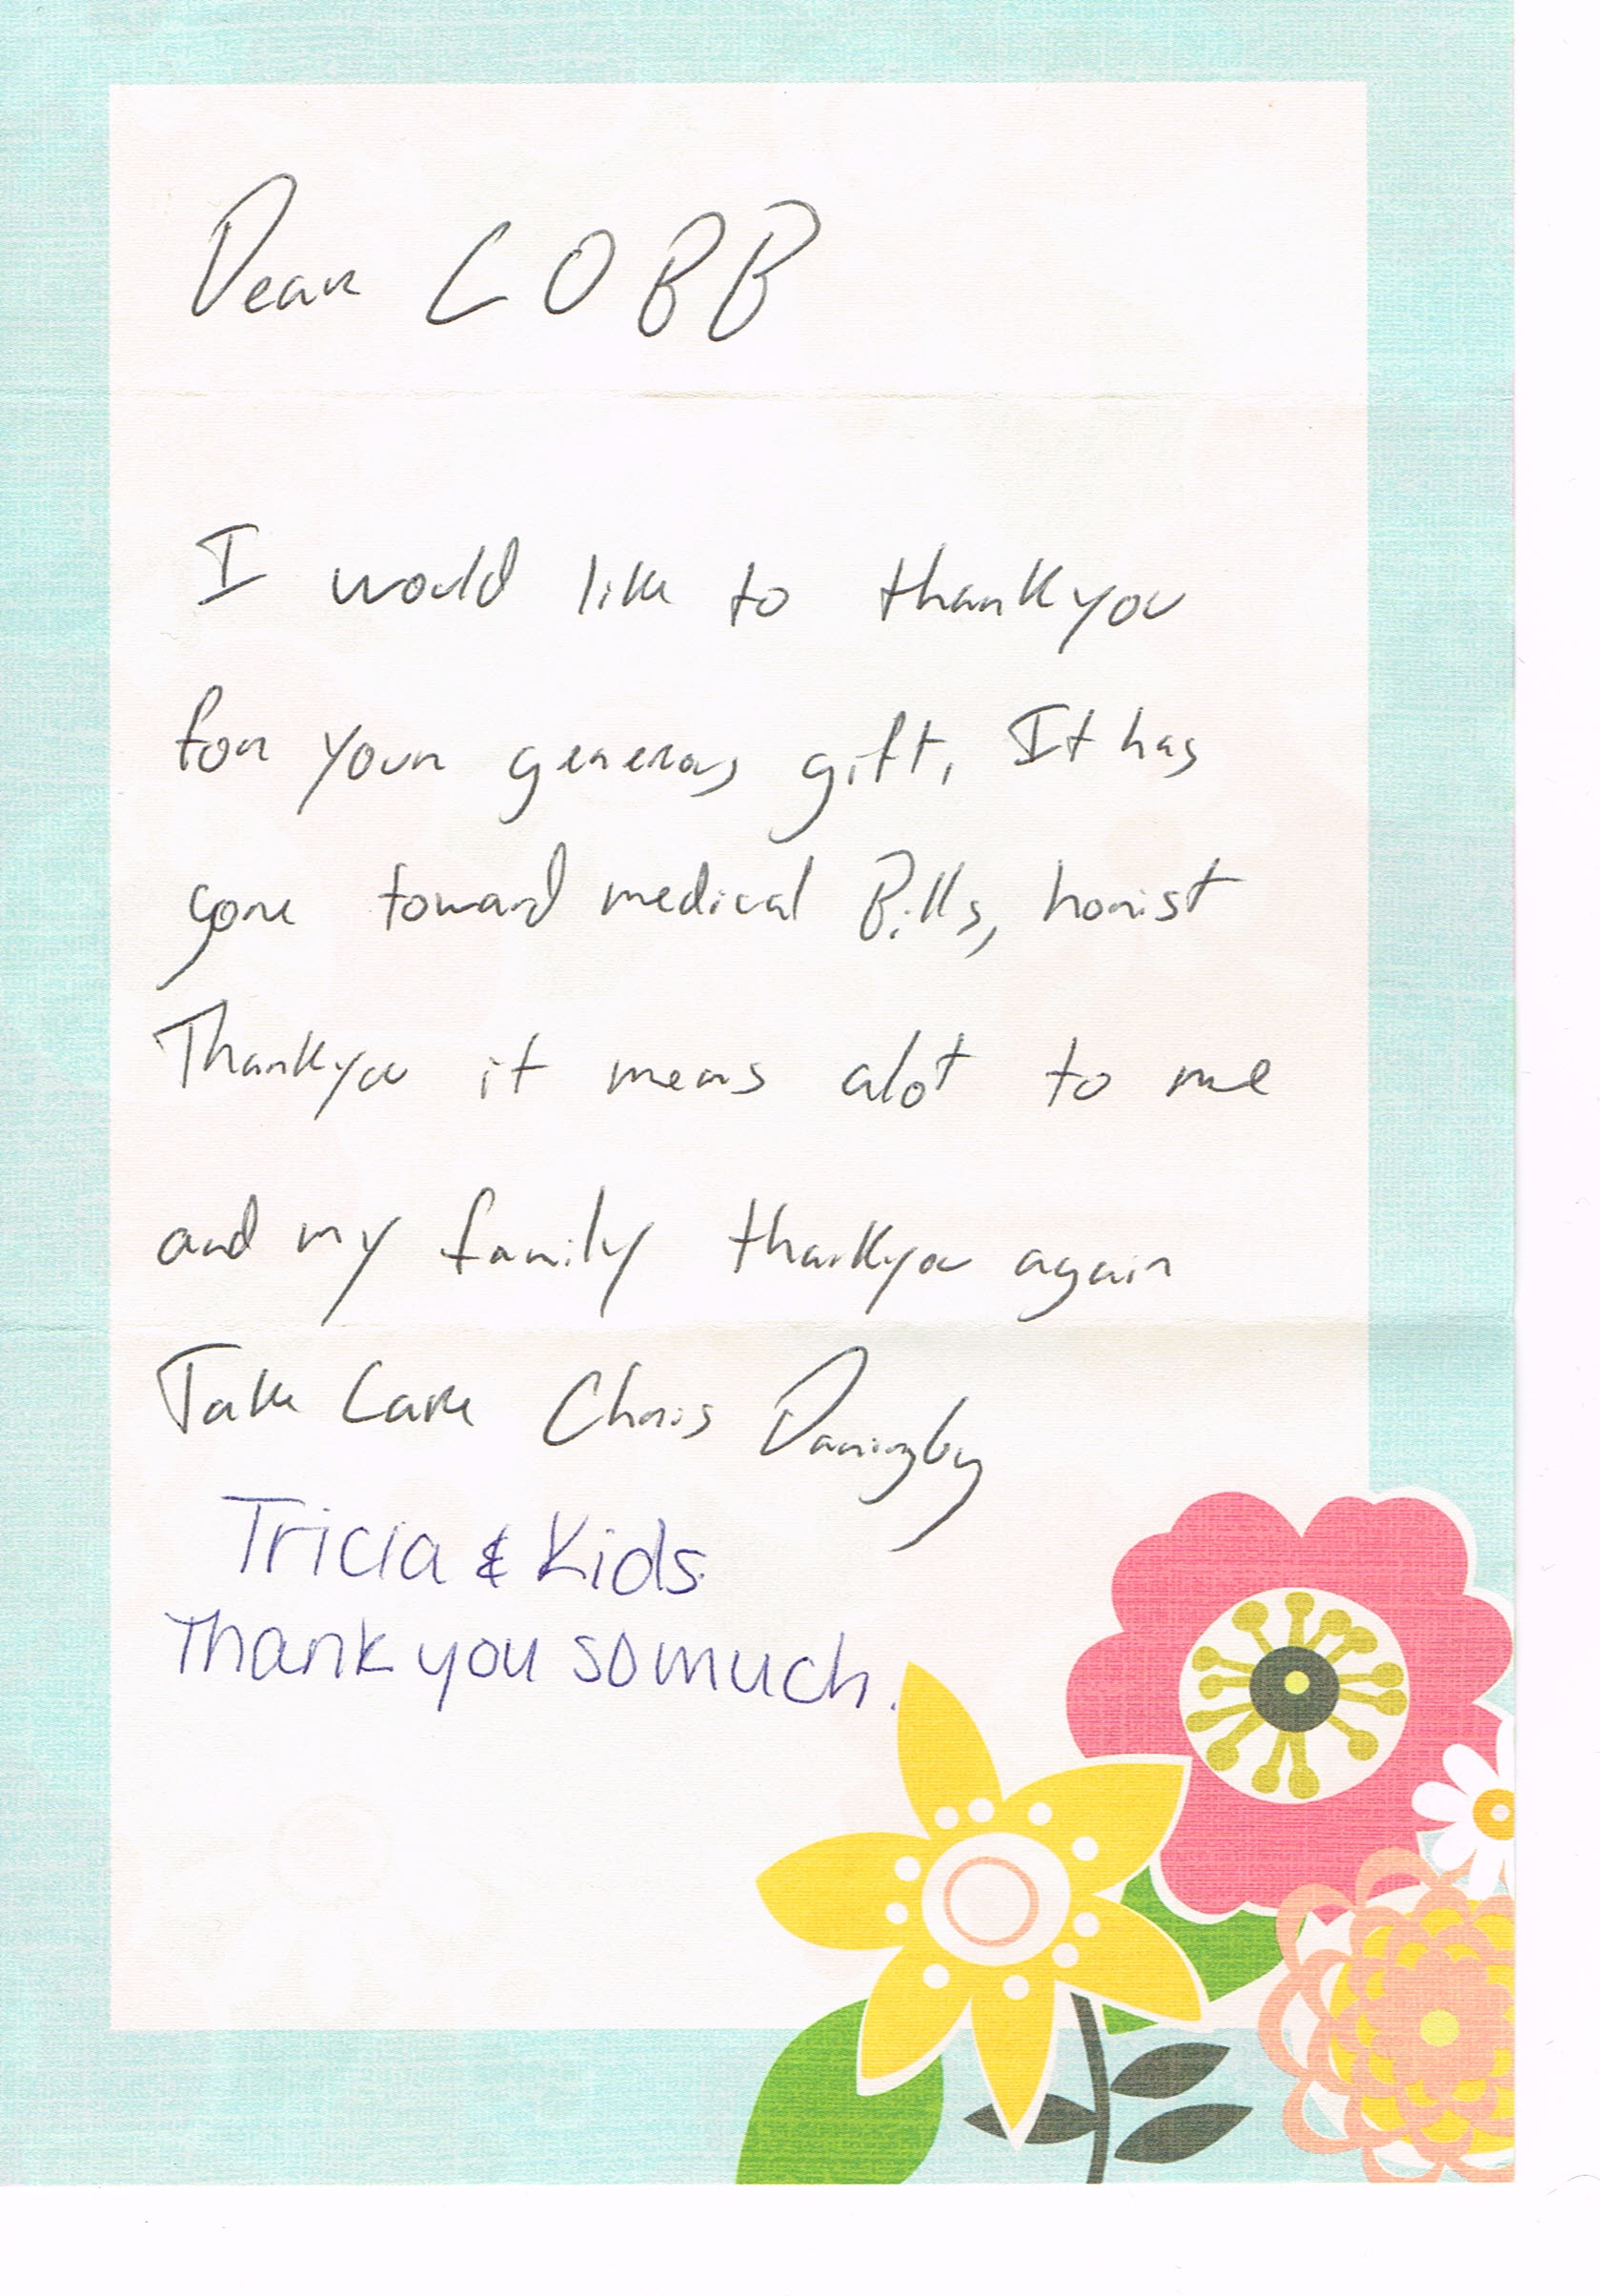 Dear COBB
I would like to thankyou
for your generous gift. It has
gone toward medical Bills, honist
Thankyou it means alot to me
and my family thankyou again
Take Care Chris
Tricia & Kids.
Thank you so much.